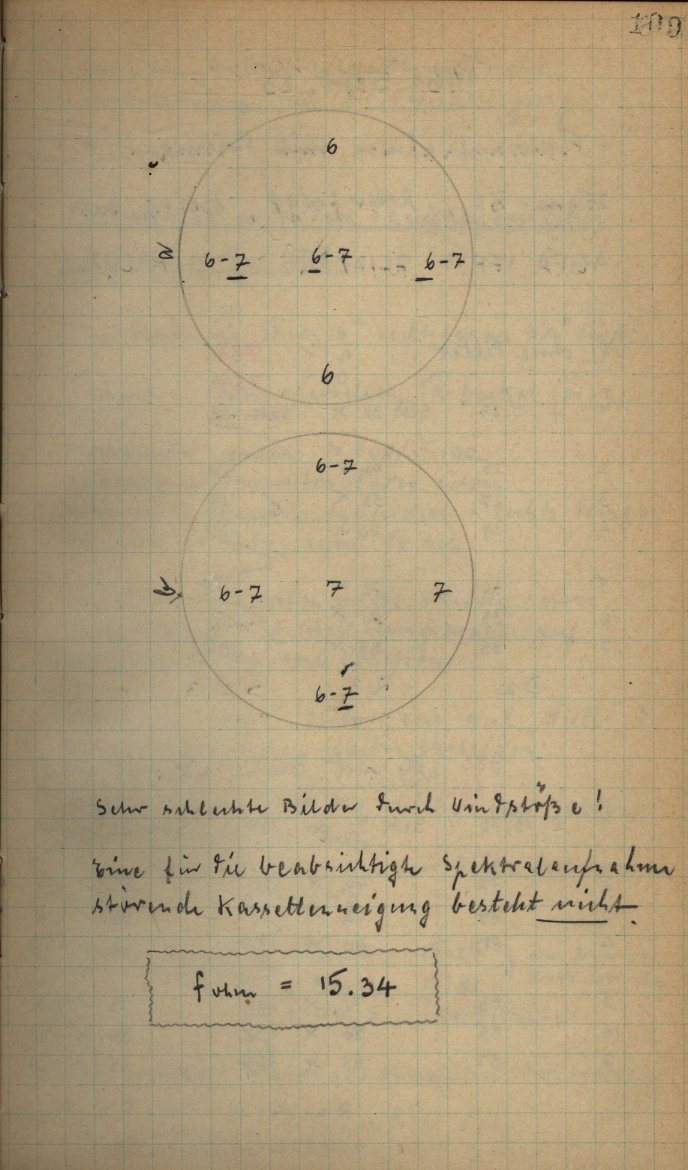 109
6
a 6-7 6-7 6-7
6
6-7
b 6-7 7 7
6-7
Sehr schlechte Bilder durch Windstöße!
Eine für die beabsichtigte Spektralaufnahme
störende Kassettenneigung besteht nicht.
f ohm = 15.34